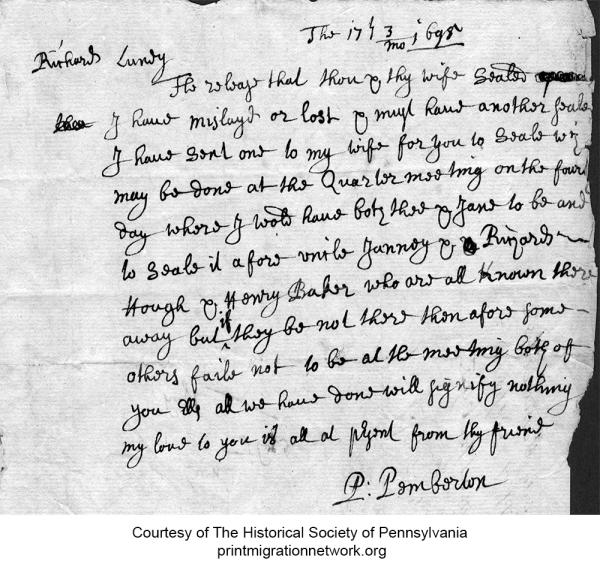 The 17th 3/mo 1698
Richard Lundy
The release that thou & thy wife Sealed
I have mislayd or lost & must have another seale
I have sent one to my wife for you to Seale wch
may be done at the Quarter meeting on the four
day where I wold have both thee & Jane to be and
to Seale it afore unkle Janney & Richard
Hough & Henry Baker who are all known there
away but if they be not there then afore some
others faile not to be at the meeting both of
you all we have done will signify nothing
my love to you is all at psent from thy friend
P: Pemberton
Courtesy of The Historical Society of Pennsylvania
printmigrationnetwork.org